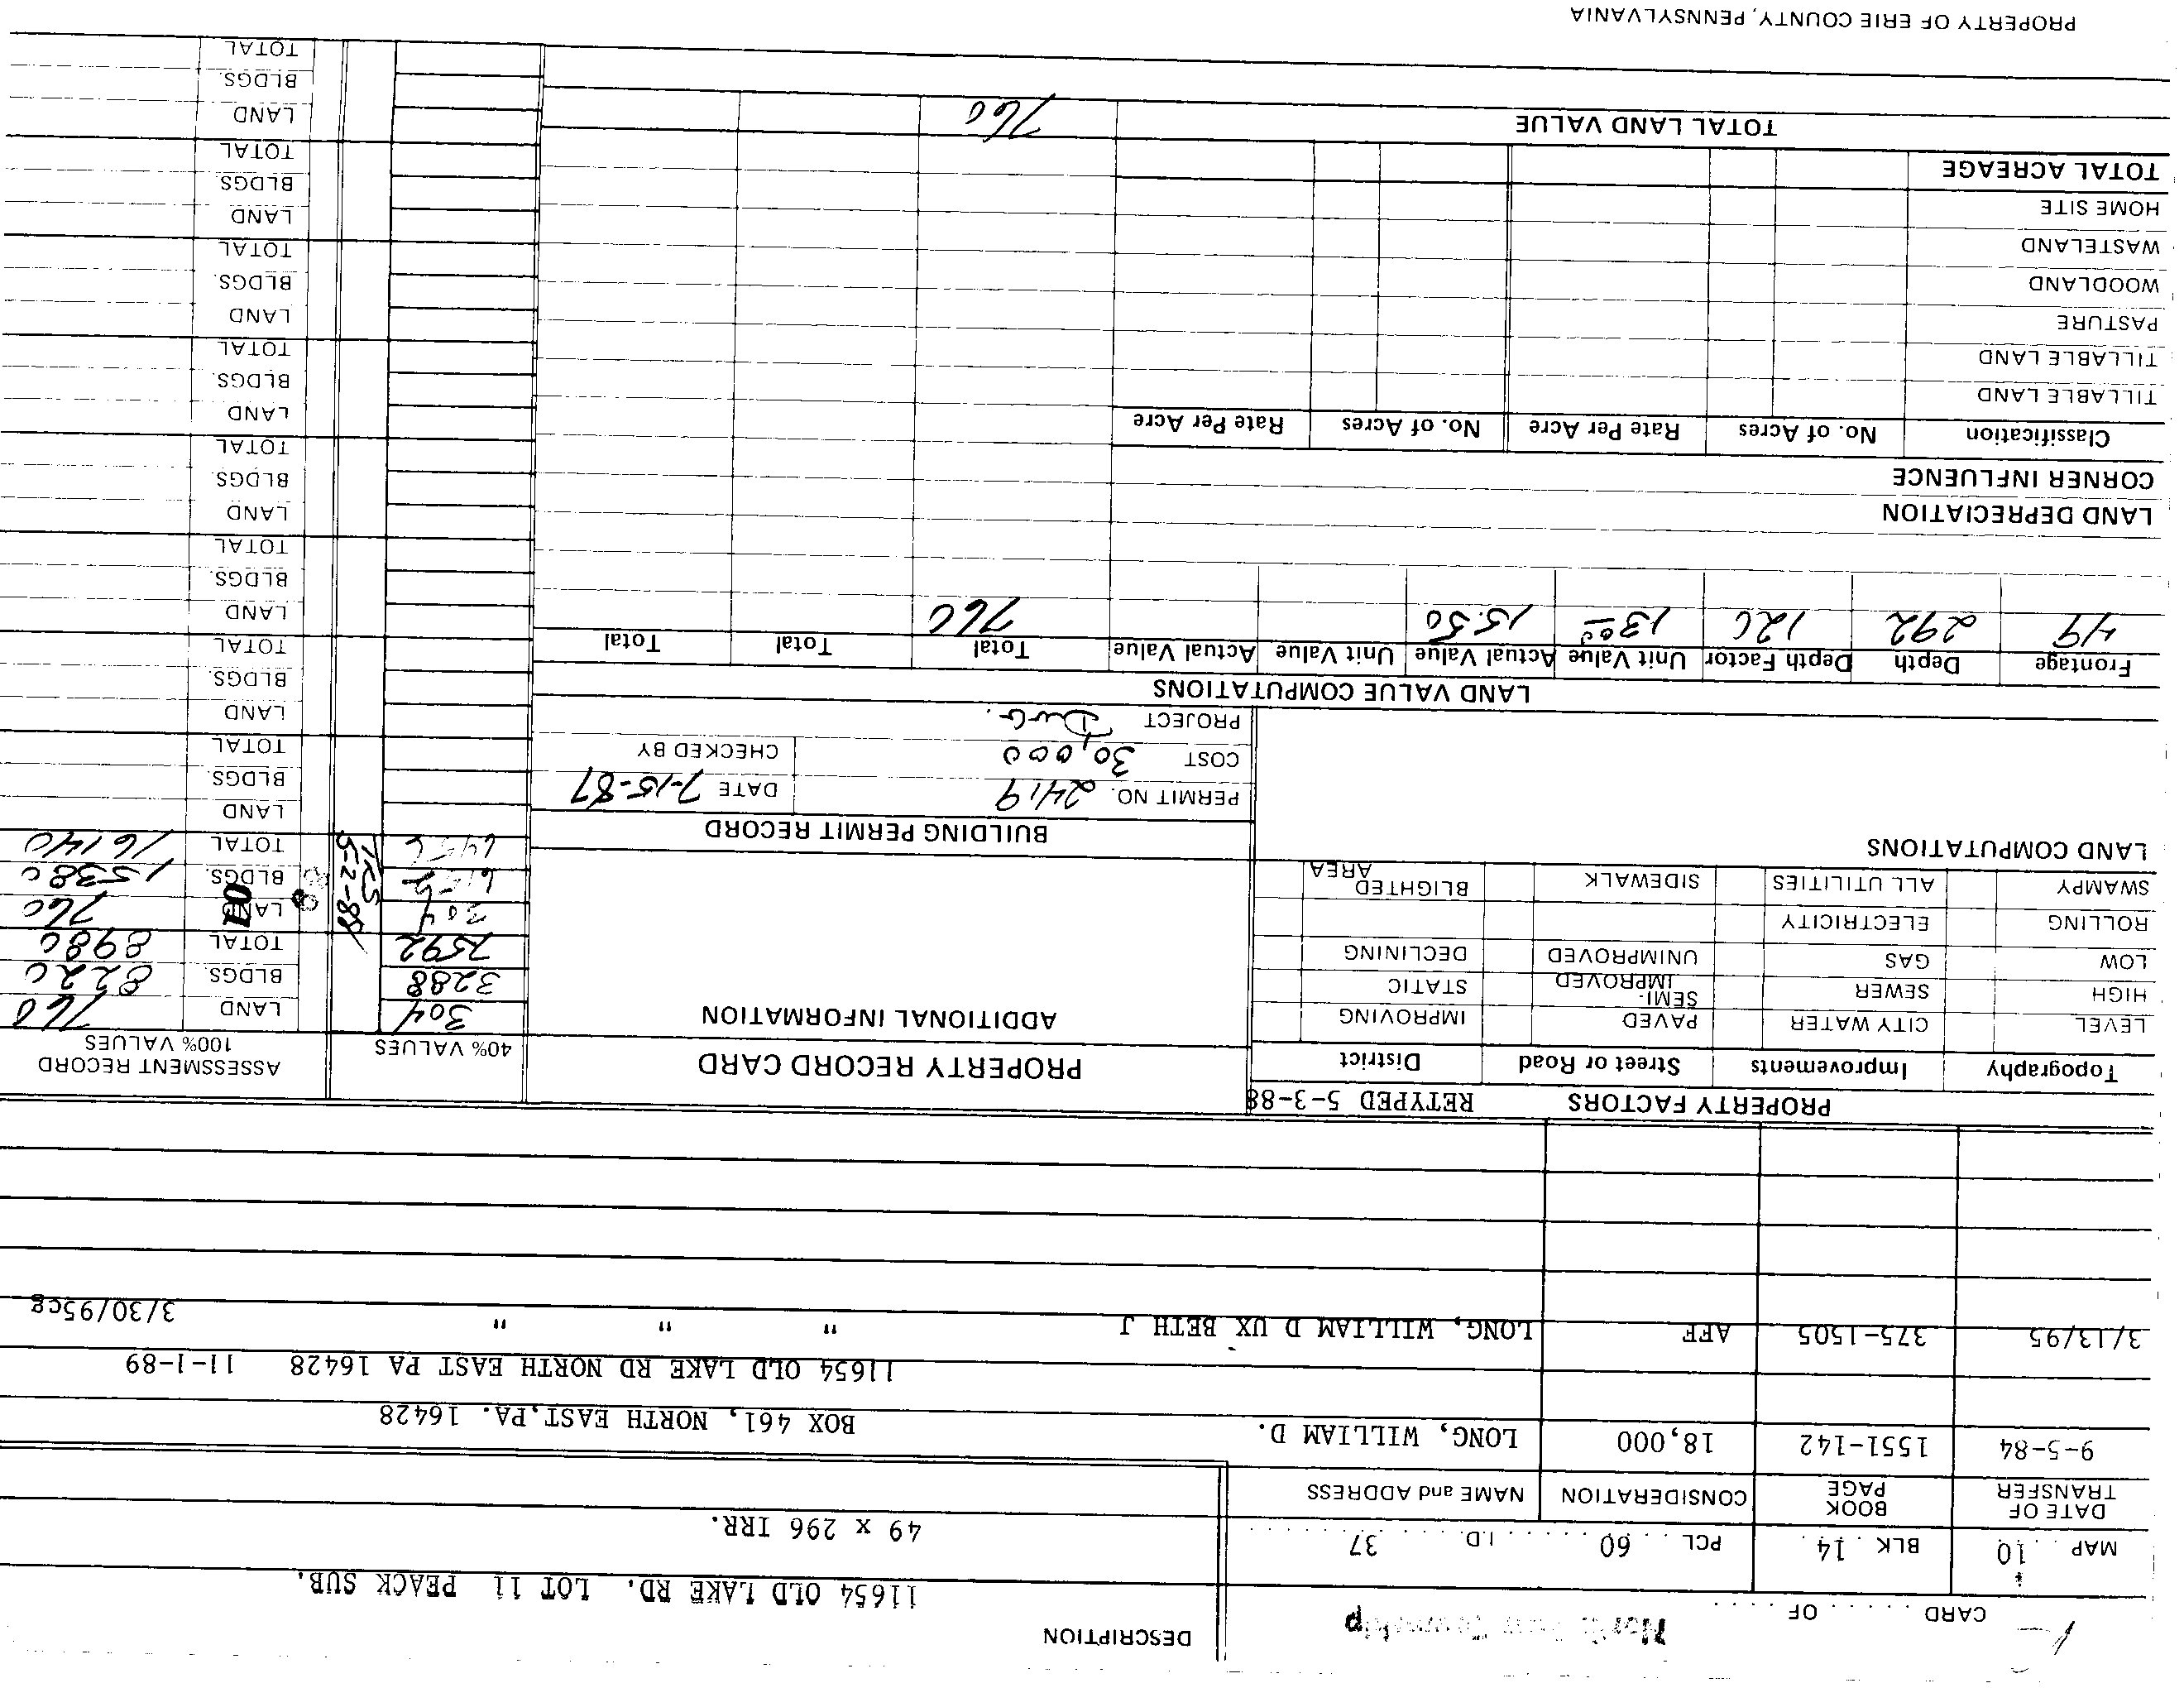 CARD . . . . . . OF . . . . .
North East Township
DESCRIPTION
11654 OLD LAKE RD. LOT 11 PEACK SUB.
49 x 296 IRR.
MAP 10 BLK 14 PCL 60 I.D. 37
DATE OF TRANSFER BOOK PAGE CONSIDERATION NAME and ADDRESS
9-5-84 1551-142 18,000 LONG, WILLIAM D. BOX 461, NORTH EAST,PA. 16428
11654 OLD LAKE RD NORTH EAST PA 16428 11-1-89
3/13/95 375-1505 AFF LONG, WILLIAM D UX BETH J " " " 3/30/95cg
PROPERTY FACTORS RETYPED 5-3-88
Topography Improvements Street or Road District
LEVEL CITY WATER PAVED IMPROVING
HIGH SEWER SEMI-IMPROVED STATIC
LOW GAS UNIMPROVED DECLINING
ROLLING ELECTRICITY
SWAMPY ALL UTILITIES SIDEWALK BLIGHTED AREA
LAND COMPUTATIONS
PROPERTY RECORD CARD
ADDITIONAL INFORMATION
BUILDING PERMIT RECORD
PERMIT NO. 2419 DATE 7-15-87
COST 30,000 CHECKED BY
PROJECT DWG.
40% VALUES ASSESSMENT RECORD 100% VALUES
304 LAND 760
3288 BLDGS. 8220
3592 TOTAL 8980
304 LAND 760
6152 BLDGS. 15380
6456 TOTAL 16140
TRS
5-2-88
01
LAND
BLDGS.
TOTAL
LAND
BLDGS.
TOTAL
LAND
BLDGS.
TOTAL
LAND
BLDGS.
TOTAL
LAND
BLDGS.
TOTAL
LAND
BLDGS.
TOTAL
LAND
BLDGS.
TOTAL
LAND
BLDGS.
TOTAL
LAND VALUE COMPUTATIONS
Frontage Depth Depth Factor Unit Value Actual Value Unit Value Actual Value Total Total Total
49 292 120 13.00 15.50 760
LAND DEPRECIATION
CORNER INFLUENCE
Classification No. of Acres Rate Per Acre No. of Acres Rate Per Acre
TILLABLE LAND
TILLABLE LAND
PASTURE
WOODLAND
WASTELAND
HOME SITE
TOTAL ACREAGE
TOTAL LAND VALUE 760
PROPERTY OF ERIE COUNTY, PENNSYLVANIA